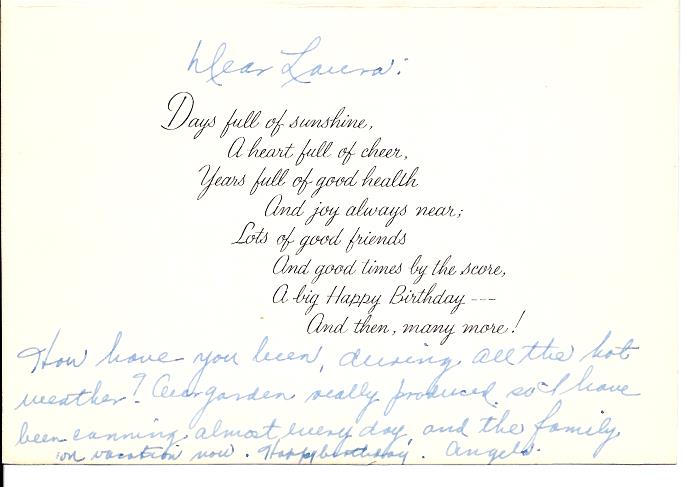 Dear Laura:
Days full of sunshine,
A heart full of cheer,
Years full of good health
And joy always near;
Lots of good friends
And good times by the score,
A big Happy Birthday ---
And then, many more!
How have you been, during all the hot
weather? Our garden really produced, so I have
been canning almost every day, and the family
on vacation now. Happy birthday. Angela.